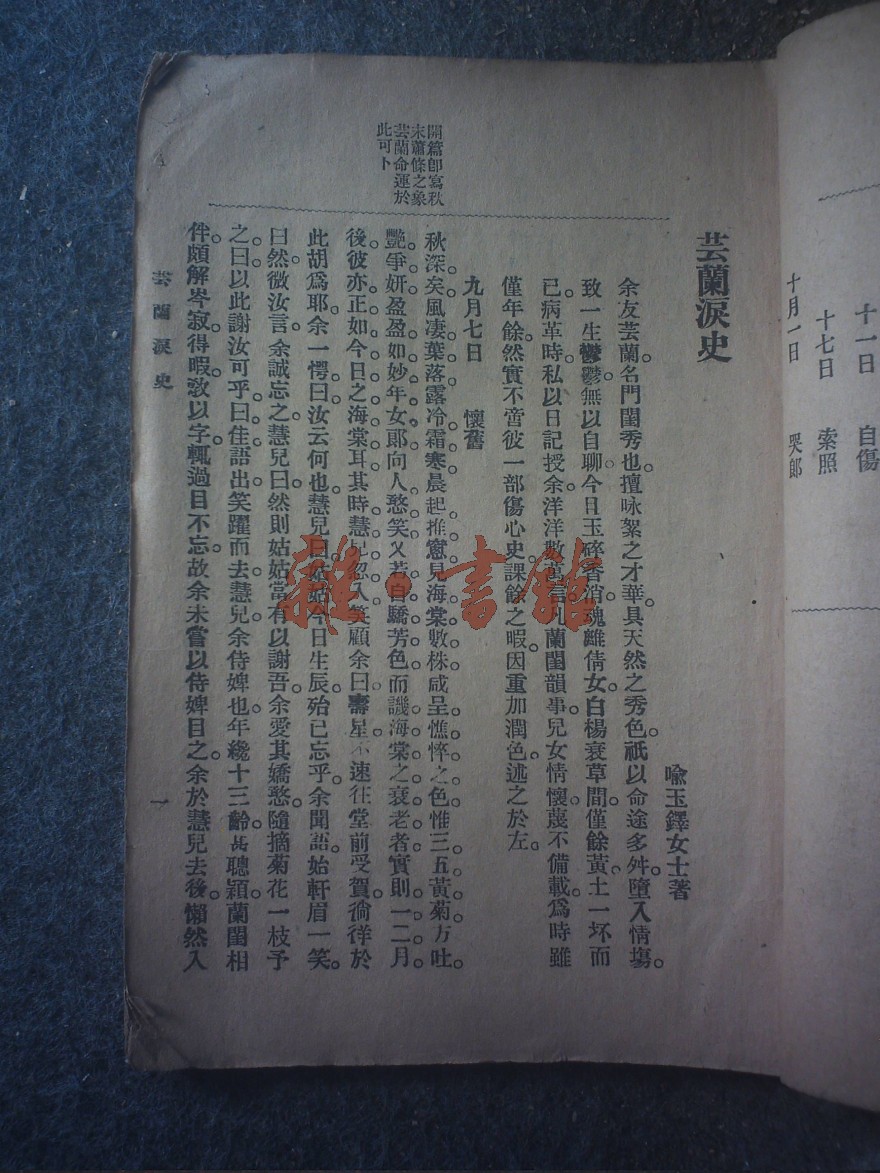 十一日　自傷
十七日　索照
十月一日　哭郞
芸蘭淚史
喩玉鐸女士著
余友芸蘭名門閨秀也。擅咏絮之才華。具天然之秀色。祇以命途多舛。墮入情塲。
致一生鬱鬱。無以自聊。今日玉碎香消。魂離倩女。白楊衰草間。僅餘黃土一坏。而
已。病革時。私以日記授余。洋洋數萬言。凡蘭閨韻事。兒女情懷。蔑不備載。爲時雖
僅年餘。然實不啻彼一部傷心史。課餘之暇。因重加潤色。述之於左。
九月七日　懷舊
秋深矣。風凄葉落。露冷霜寒。晨起推窻。見海棠數株。咸呈憔悴之色。惟三五黃菊。方吐
艷爭妍。盈盈如妙年女郞。向人憨笑。又若自驕芳色。而譏海棠之衰老者。實則一二月
後。彼亦正如今日之海棠耳。其時慧兒忽入。笑顧余曰。壽星不速往堂前受賀。徜徉於
此胡爲耶。余一愕曰。汝云何也。慧兒曰。姑姑今日生辰。殆已忘乎。余聞語。始軒眉一笑。
曰。然。微汝言。余誠忘之。慧兒曰。然則姑姑當有以謝吾。余愛其嬌憨。隨摘菊花一枝予
之曰。以此謝汝可乎。曰佳。語出笑躍而去。慧兒余侍婢也。年纔十三齡。甚聰穎。蘭閨相
伴。頗解岑寂。得暇敎以字。輒過目不忘。故余未嘗以侍婢目之。余於慧兒去後。懶然入
開篇卽寫秋
末蕭條之象
芸蘭命運於
此可卜
芸蘭淚史　一
雜·書館